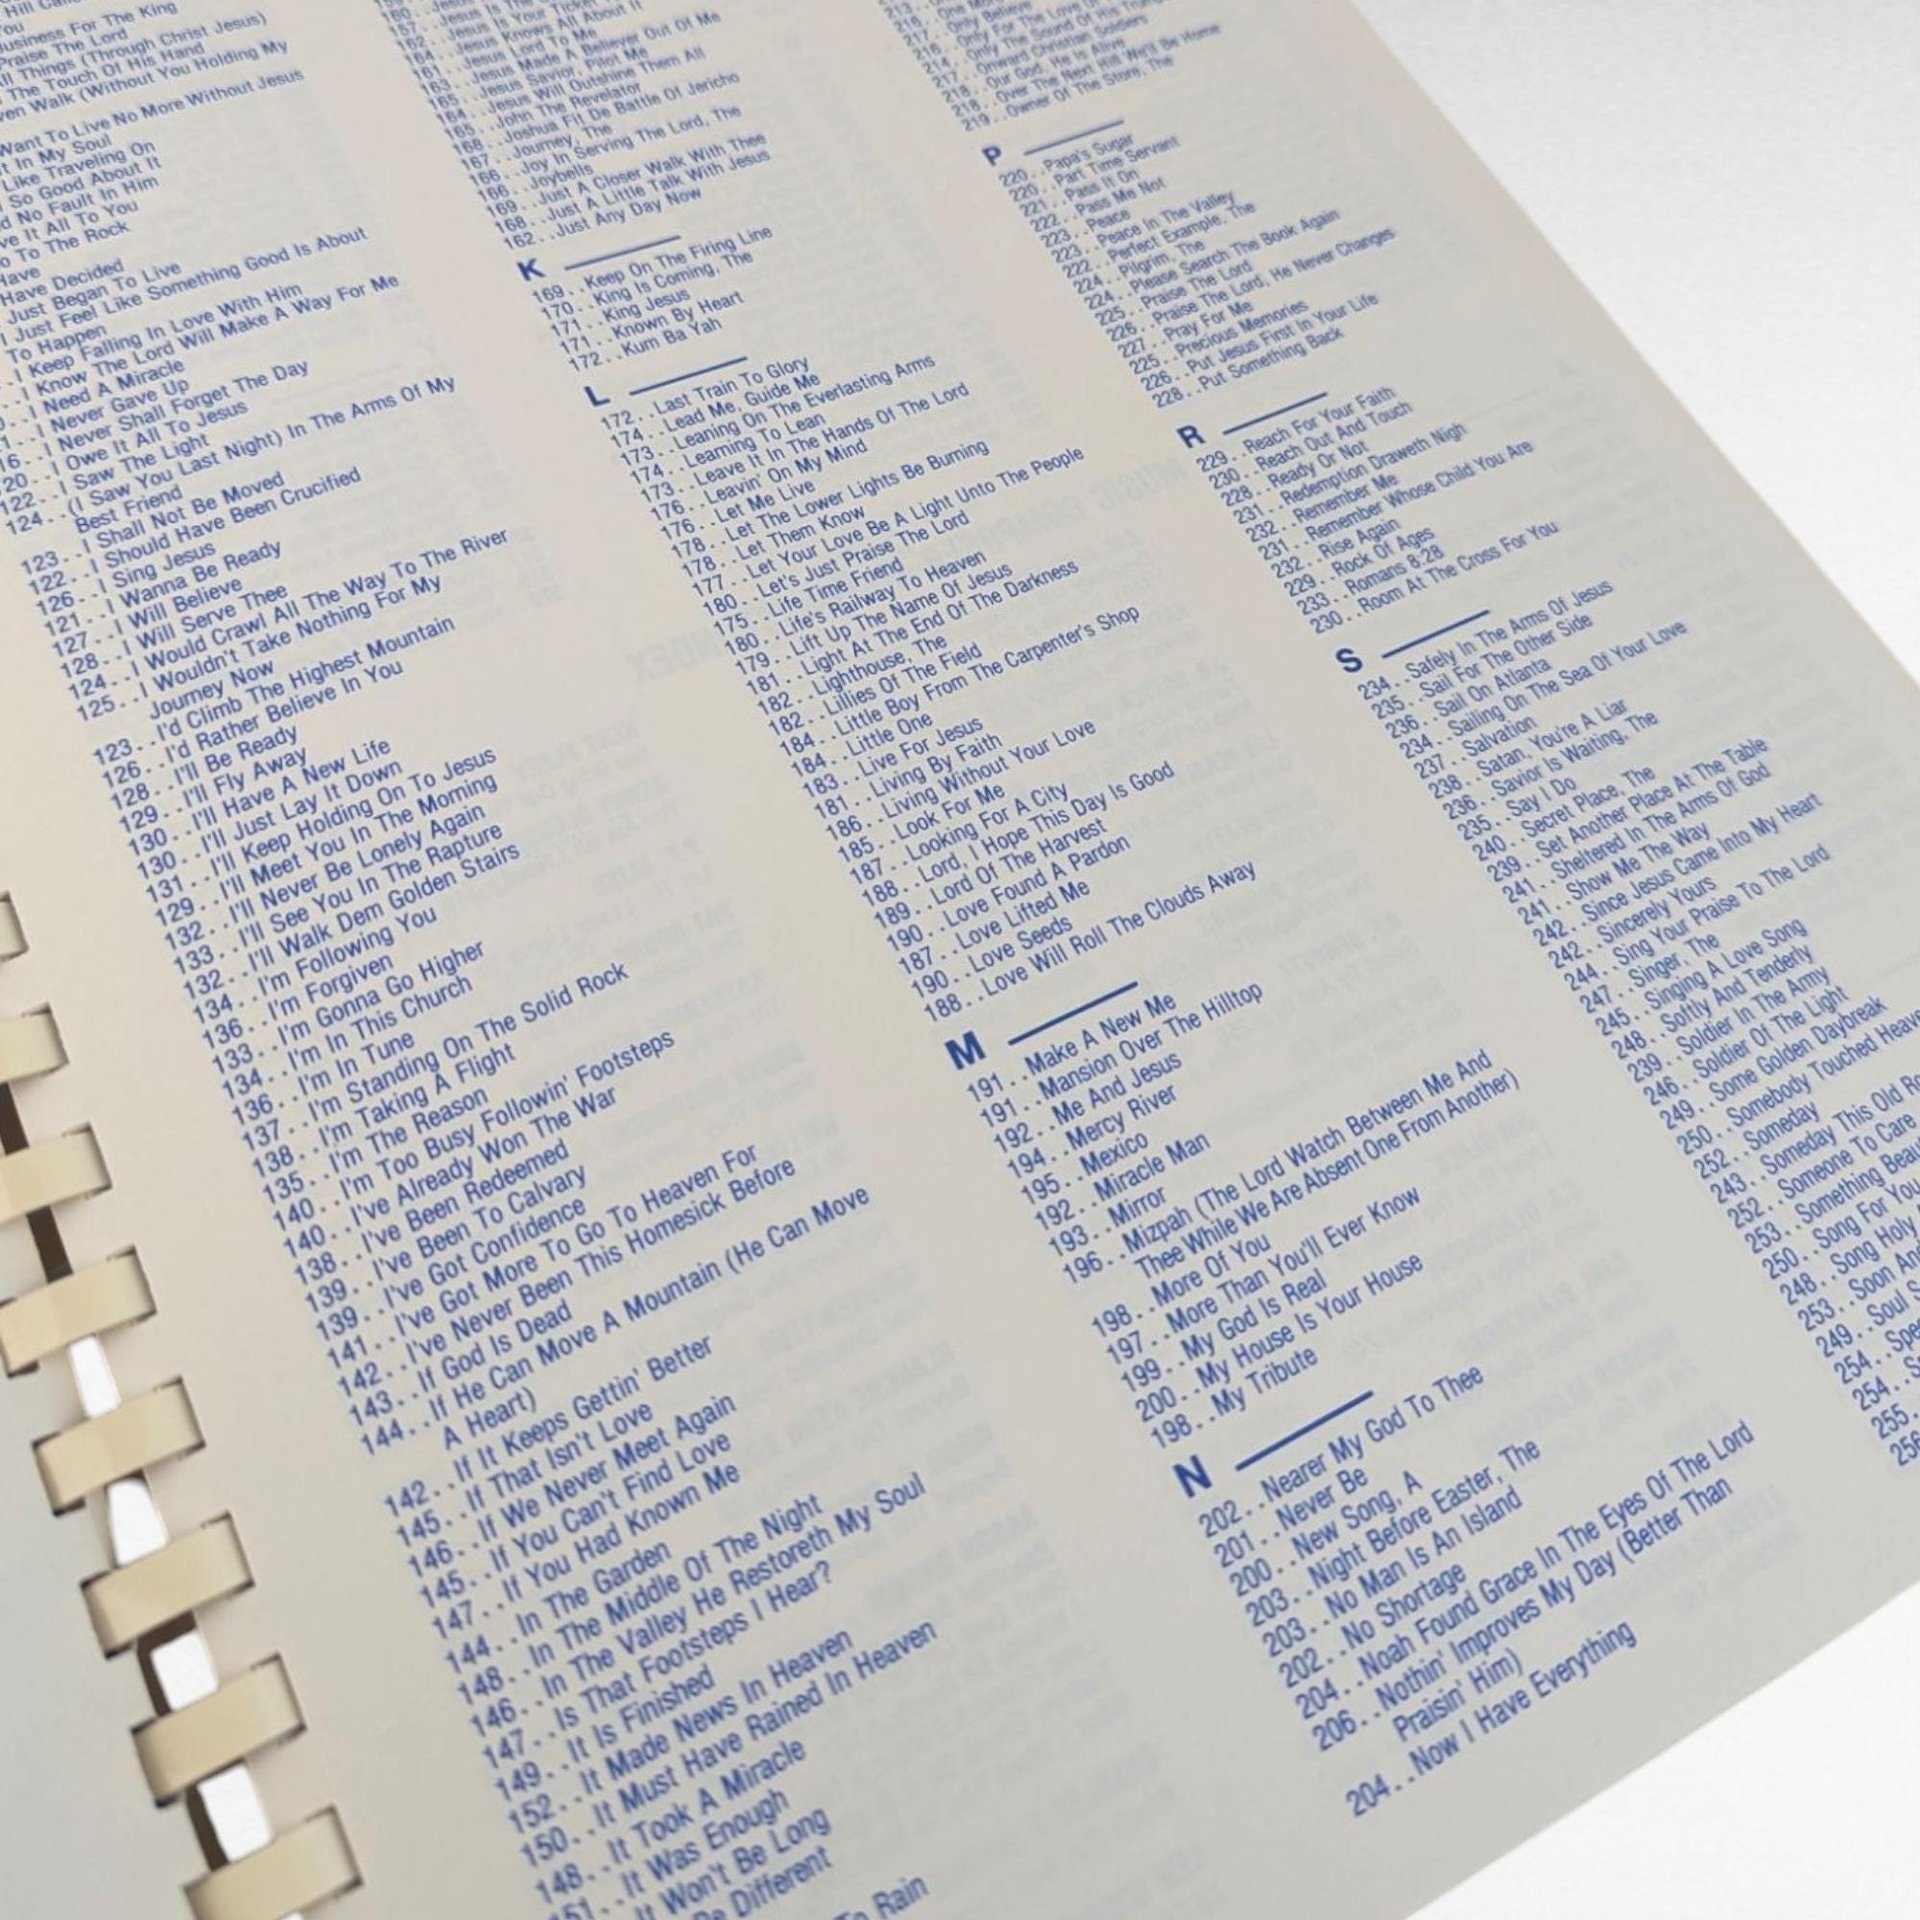 Business For The King
Praise The Lord
Things (Through Christ Jesus)
The Touch Of His Hand
Walk (Without You Holding My
Want To Live No More Without Jesus
In My Soul
Like Traveling On
So Good About It
No Fault In Him
It All To You
To The Rock
Have
Have Decided
Just Began To Live
I Just Feel Like Something Good Is About
To Happen
I Keep Falling In Love With Him
I Know The Lord Will Make A Way For Me
I Need A Miracle
I Never Gave Up
I Never Shall Forget The Day
I Owe It All To Jesus
122..I Saw The Light
124..(I Saw You Last Night) In The Arms Of My
Best Friend
123..I Shall Not Be Moved
122..I Should Have Been Crucified
126..I Sing Jesus
121..I Wanna Be Ready
127..I Will Believe
128..I Will Serve Thee
124..I Would Crawl All The Way To The River
125..I Wouldn't Take Nothing For My
Journey Now
123..I'd Climb The Highest Mountain
126..I'd Rather Believe In You
128..I'll Be Ready
129..I'll Fly Away
130..I'll Have A New Life
130..I'll Just Lay It Down
131..I'll Keep Holding On To Jesus
129..I'll Meet You In The Morning
132..I'll Never Be Lonely Again
133..I'll See You In The Rapture
132..I'll Walk Dem Golden Stairs
134..I'm Following You
136..I'm Forgiven
133..I'm Gonna Go Higher
134..I'm In This Church
136..I'm In Tune
137..I'm Standing On The Solid Rock
138..I'm Taking A Flight
135..I'm The Reason
140..I'm Too Busy Followin' Footsteps
140..I've Already Won The War
138..I've Been Redeemed
139..I've Been To Calvary
139..I've Got Confidence
141..I've Got More To Go To Heaven For
142..I've Never Been This Homesick Before
143..If God Is Dead
144..If He Can Move A Mountain (He Can Move
A Heart)
142..If It Keeps Gettin' Better
145..If That Isn't Love
146..If We Never Meet Again
145..If You Can't Find Love
147..If You Had Known Me
144..In The Garden
148..In The Middle Of The Night
146..In The Valley He Restoreth My Soul
147..Is That Footsteps I Hear?
149..It Is Finished
152..It Made News In Heaven
150..It Must Have Rained In Heaven
148..It Took A Miracle
151..It Was Enough
It Won't Be Long
Be Different
To Rain
Jesus Is The
Is Your Ticket
Jesus Knows All About It
Jesus Lord To Me
Jesus Made A Believer Out Of Me
Jesus Savior, Pilot Me
Jesus Will Outshine Them All
165..John The Revelator
168..Joshua Fit De Battle Of Jericho
167..Journey, The
166..Joy In Serving The Lord, The
166..Joybells
169..Just A Closer Walk With Thee
168..Just A Little Talk With Jesus
162..Just Any Day Now
K
169..Keep On The Firing Line
170..King Is Coming, The
171..King Jesus
171..Known By Heart
172..Kum Ba Yah
L
172..Last Train To Glory
174..Lead Me, Guide Me
173..Leaning On The Everlasting Arms
174..Learning To Lean
173..Leave It In The Hands Of The Lord
176..Leavin' On My Mind
176..Let Me Live
178..Let The Lower Lights Be Burning
178..Let Them Know
177..Let Your Love Be A Light Unto The People
180..Let's Just Praise The Lord
175..Life Time Friend
180..Life's Railway To Heaven
179..Lift Up The Name Of Jesus
181..Light At The End Of The Darkness
182..Lighthouse, The
182..Lillies Of The Field
184..Little Boy From The Carpenter's Shop
184..Little One
183..Live For Jesus
181..Living By Faith
186..Living Without Your Love
185..Look For Me
187..Looking For A City
188..Lord, I Hope This Day Is Good
189..Lord Of The Harvest
190..Love Found A Pardon
187..Love Lifted Me
190..Love Seeds
188..Love Will Roll The Clouds Away
M
191..Make A New Me
191..Mansion Over The Hilltop
192..Me And Jesus
194..Mercy River
195..Mexico
192..Miracle Man
193..Mirror
196..Mizpah (The Lord Watch Between Me And
Thee While We Are Absent One From Another)
198..More Of You
197..More Than You'll Ever Know
199..My God Is Real
200..My House Is Your House
198..My Tribute
N
202..Nearer My God To Thee
201..Never Be
200..New Song, A
203..Night Before Easter, The
203..No Man Is An Island
202..No Shortage
204..Noah Found Grace In The Eyes Of The Lord
206..Nothin' Improves My Day (Better Than
Praisin' Him)
204..Now I Have Everything
Only Believe
Only For The Love Of
Only The Sound Of His
217..Onward Christian Soldiers
218..Our God, He Is Alive
218..Over The Next Hill We'll Be Home
219..Owner Of The Store, The
P
220..Papa's Sugar
220..Part Time Servant
221..Pass It On
222..Pass Me Not
223..Peace
223..Peace In The Valley
222..Perfect Example, The
224..Pilgrim, The
224..Please Search The Book Again
225..Praise The Lord
226..Praise The Lord, He Never Changes
227..Pray For Me
225..Precious Memories
226..Put Jesus First In Your Life
228..Put Something Back
R
229..Reach For Your Faith
230..Reach Out And Touch
228..Ready Or Not
231..Redemption Draweth Nigh
232..Remember Me
231..Remember Whose Child You Are
232..Rise Again
229..Rock Of Ages
233..Romans 8:28
230..Room At The Cross For You
S
234..Safely In The Arms Of Jesus
235..Sail For The Other Side
236..Sail On Atlanta
234..Sailing On The Sea Of Your Love
237..Salvation
238..Satan, You're A Liar
236..Savior Is Waiting, The
235..Say I Do
240..Secret Place, The
239..Set Another Place At The Table
241..Sheltered In The Arms Of God
241..Show Me The Way
242..Since Jesus Came Into My Heart
242..Sincerely Yours
244..Sing Your Praise To The Lord
247..Singer, The
245..Singing A Love Song
248..Softly And Tenderly
239..Soldier In The Army
246..Soldier Of The Light
249..Some Golden Daybreak
250..Somebody Touched
252..Someday
243..Someday This Old
252..Someone To Care
253..Something
250..Song For You
248..Song Holy
253..Soon
249..Soul
254..
254..
255..
256